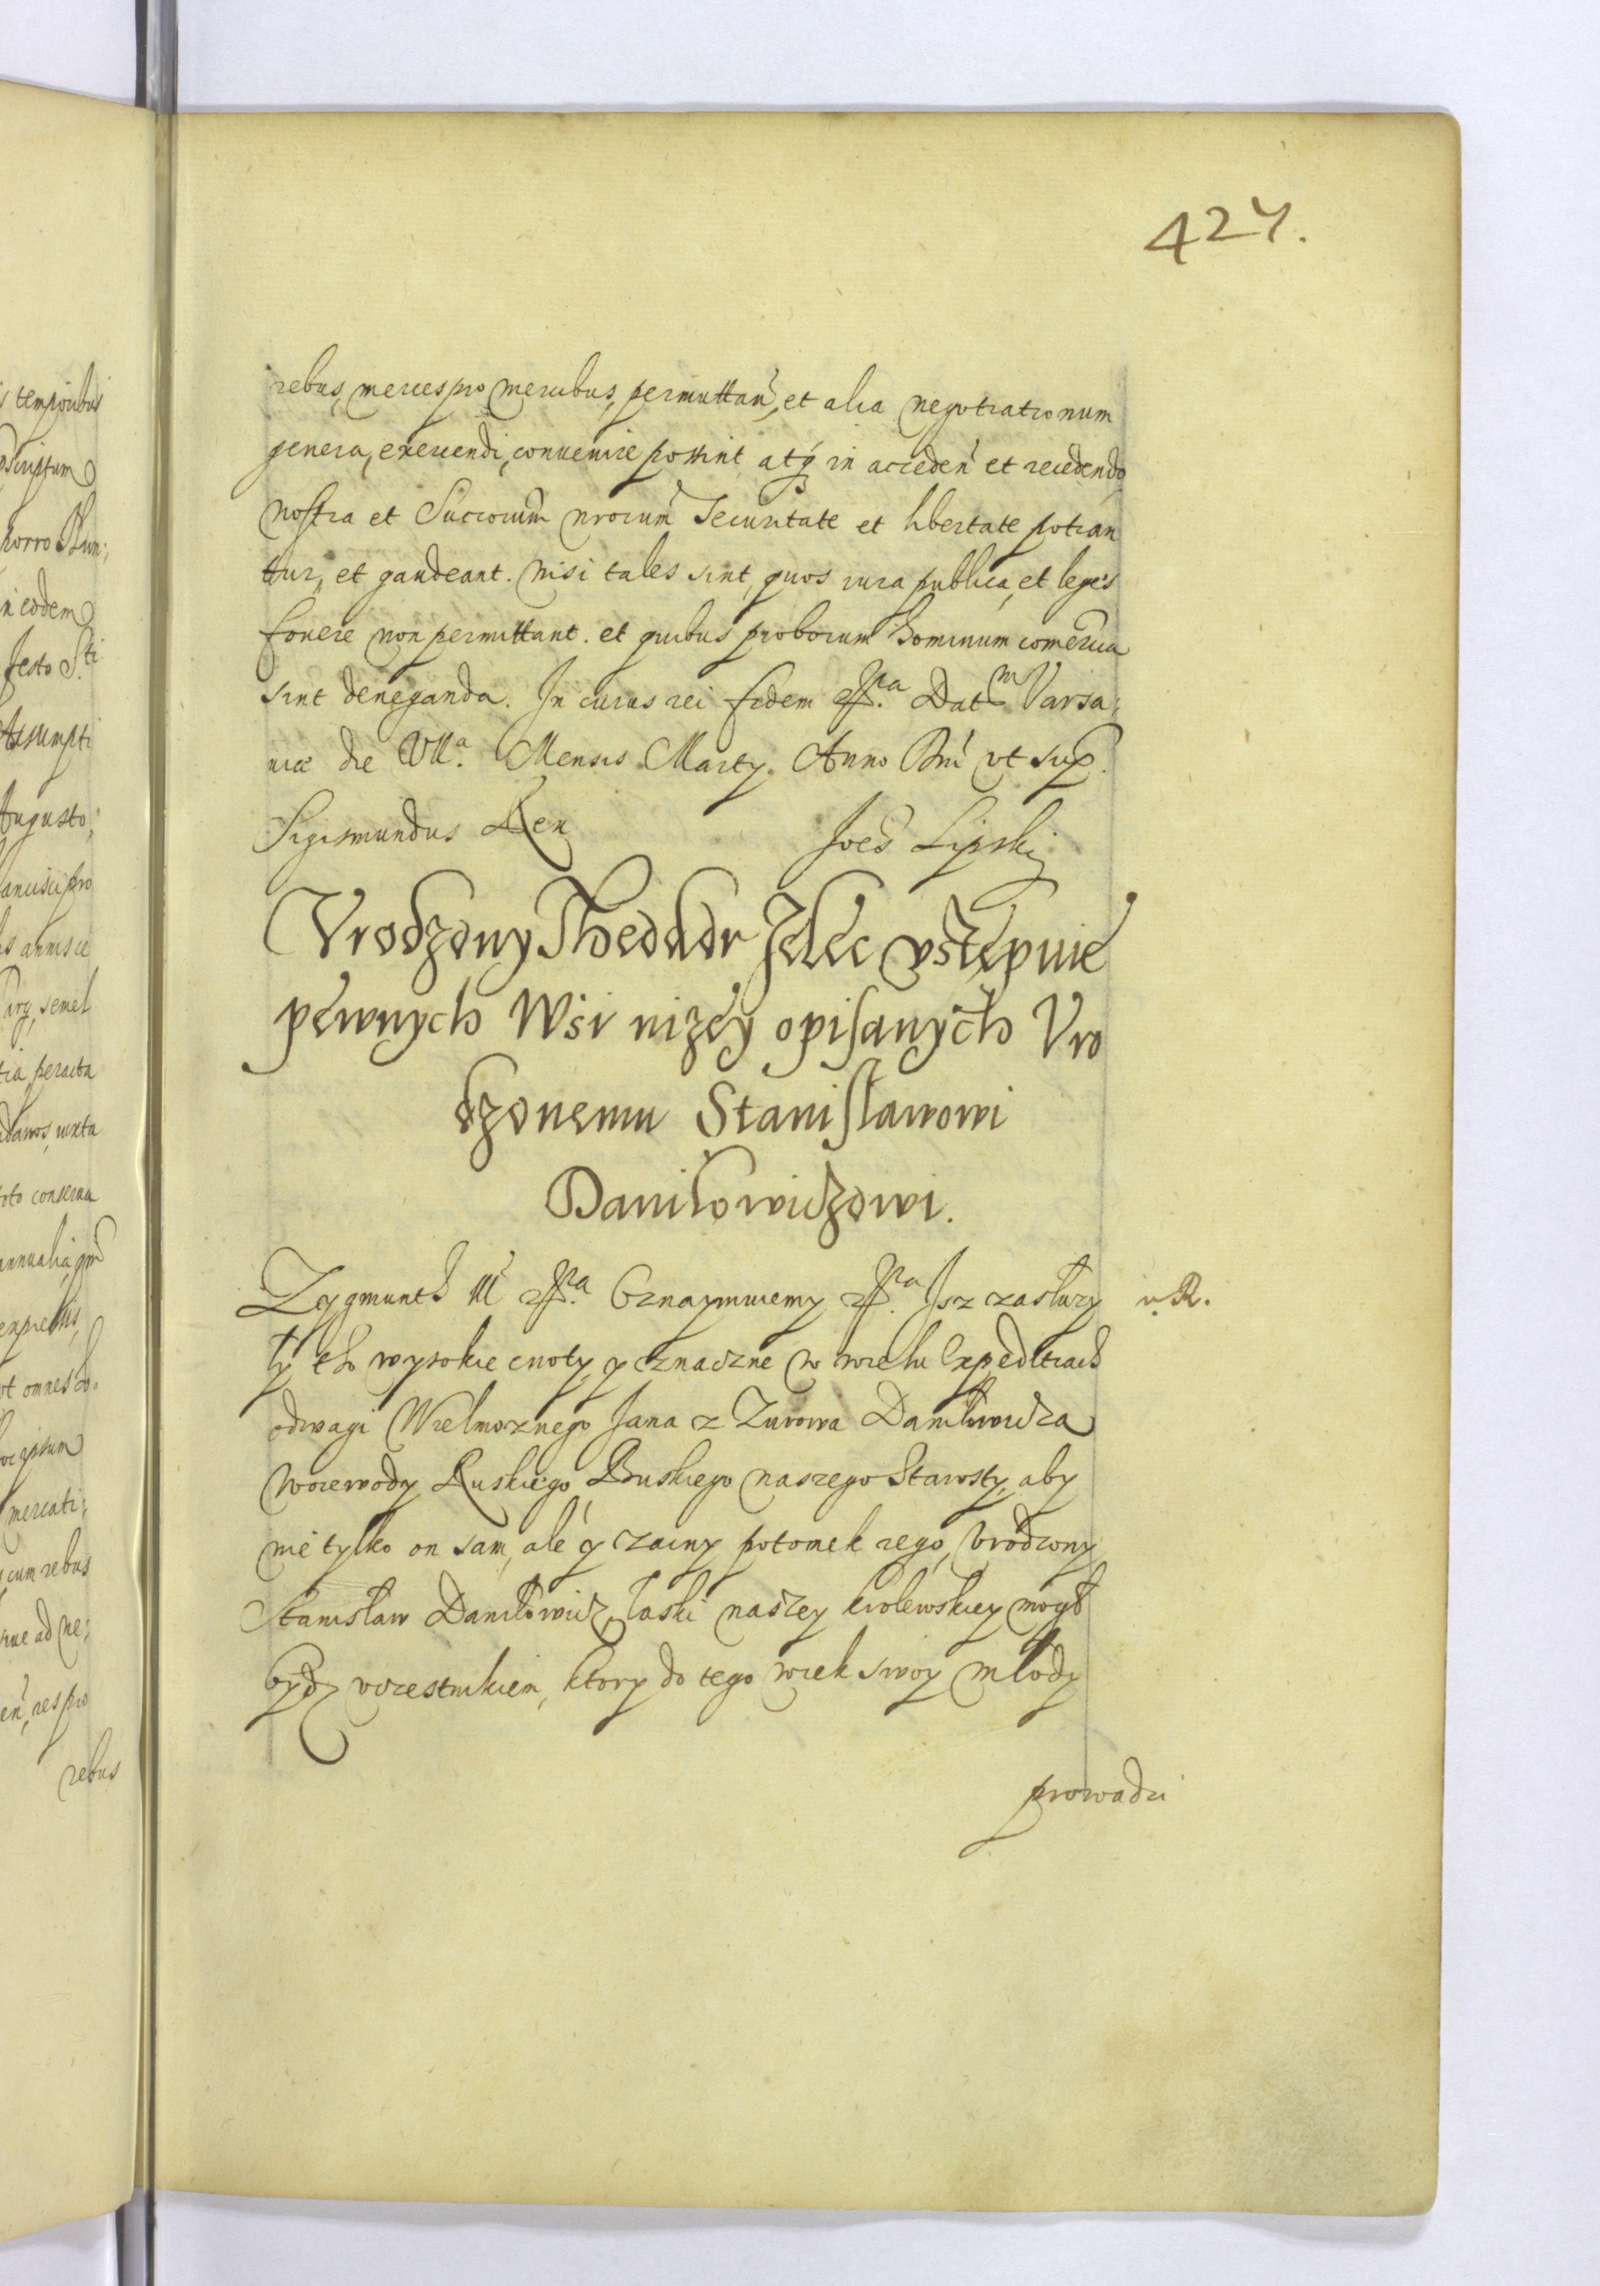 427.
rebus, merces pro mercibus, permuttan, et alia negotiationum
genera, exercendi, convenire possint atq in acceden et recedendo
nostra et Succorum nrorum Securitate et libertate potian
tur, et gaudeant. nisi tales sint, quos iura publica, et leges
fovere non permittant. et quibus proborum hominum comercia
sint deneganda. In cuius rei fidem Datm Varsa:
viæ die VIIa. Mensis Marty. Anno Dni vt sup.
Sigismundus Rex Joes Lipski
Vrodzony Theodor Jelec vstępuie
pewnych Wsi niżey opisanych Vro
dzonemu Stanisławowi
Daniłowiczowi.
Zygmunth III Oznaymuiemy Isz zasługi
ty tho wysokie cnoty, y znaczne w wielu Expeditiach
odwagi Wielmoznego Jana z Zurowa Daniłowicza
Woiewody Ruskiego Buskiego naszego Starosty, aby
nie tylko on sam, ale y zacny potomek iego, Vrodzony
Stanisław Daniłowicz, łaski naszey krolewskiey mogł
bydz vczestnikiem, ktory do tego wiek swoy młody
prowadzi
temporibus
eodem
festo Sti
Assumpti
Augusto,
semel
peracta
iuxta
conserva
omnes
ipsum
mercati:
cum rebus
ad ne:
res pro
rebus